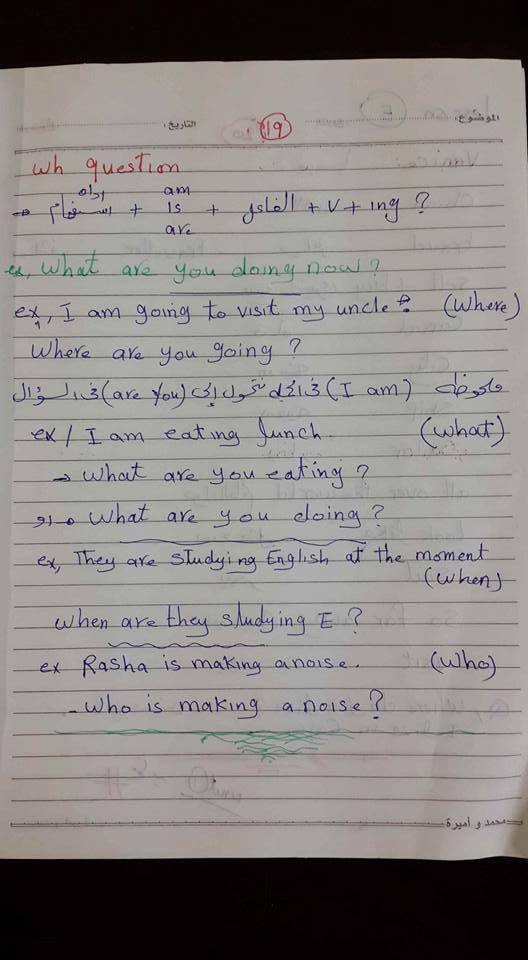 الموضوع:
التاريخ:
19
Wh question
أداة am
→ استفهام + is + الفاعل + V + ing ?
are
ex, What are you doing now?
ex, I am going to visit my uncle. (Where)
Where are you going ?
ملحوظة (I am) في الـ تتحول إلى (are you) في السؤال
ex / I am eating lunch. (what)
→ What are you eating ?
أو → What are you doing ?
ex, They are studying English at the moment
(when)
When are they studying E ?
ex Rasha is making a noise. (Who)
- Who is making a noise?
محمد و أميرة